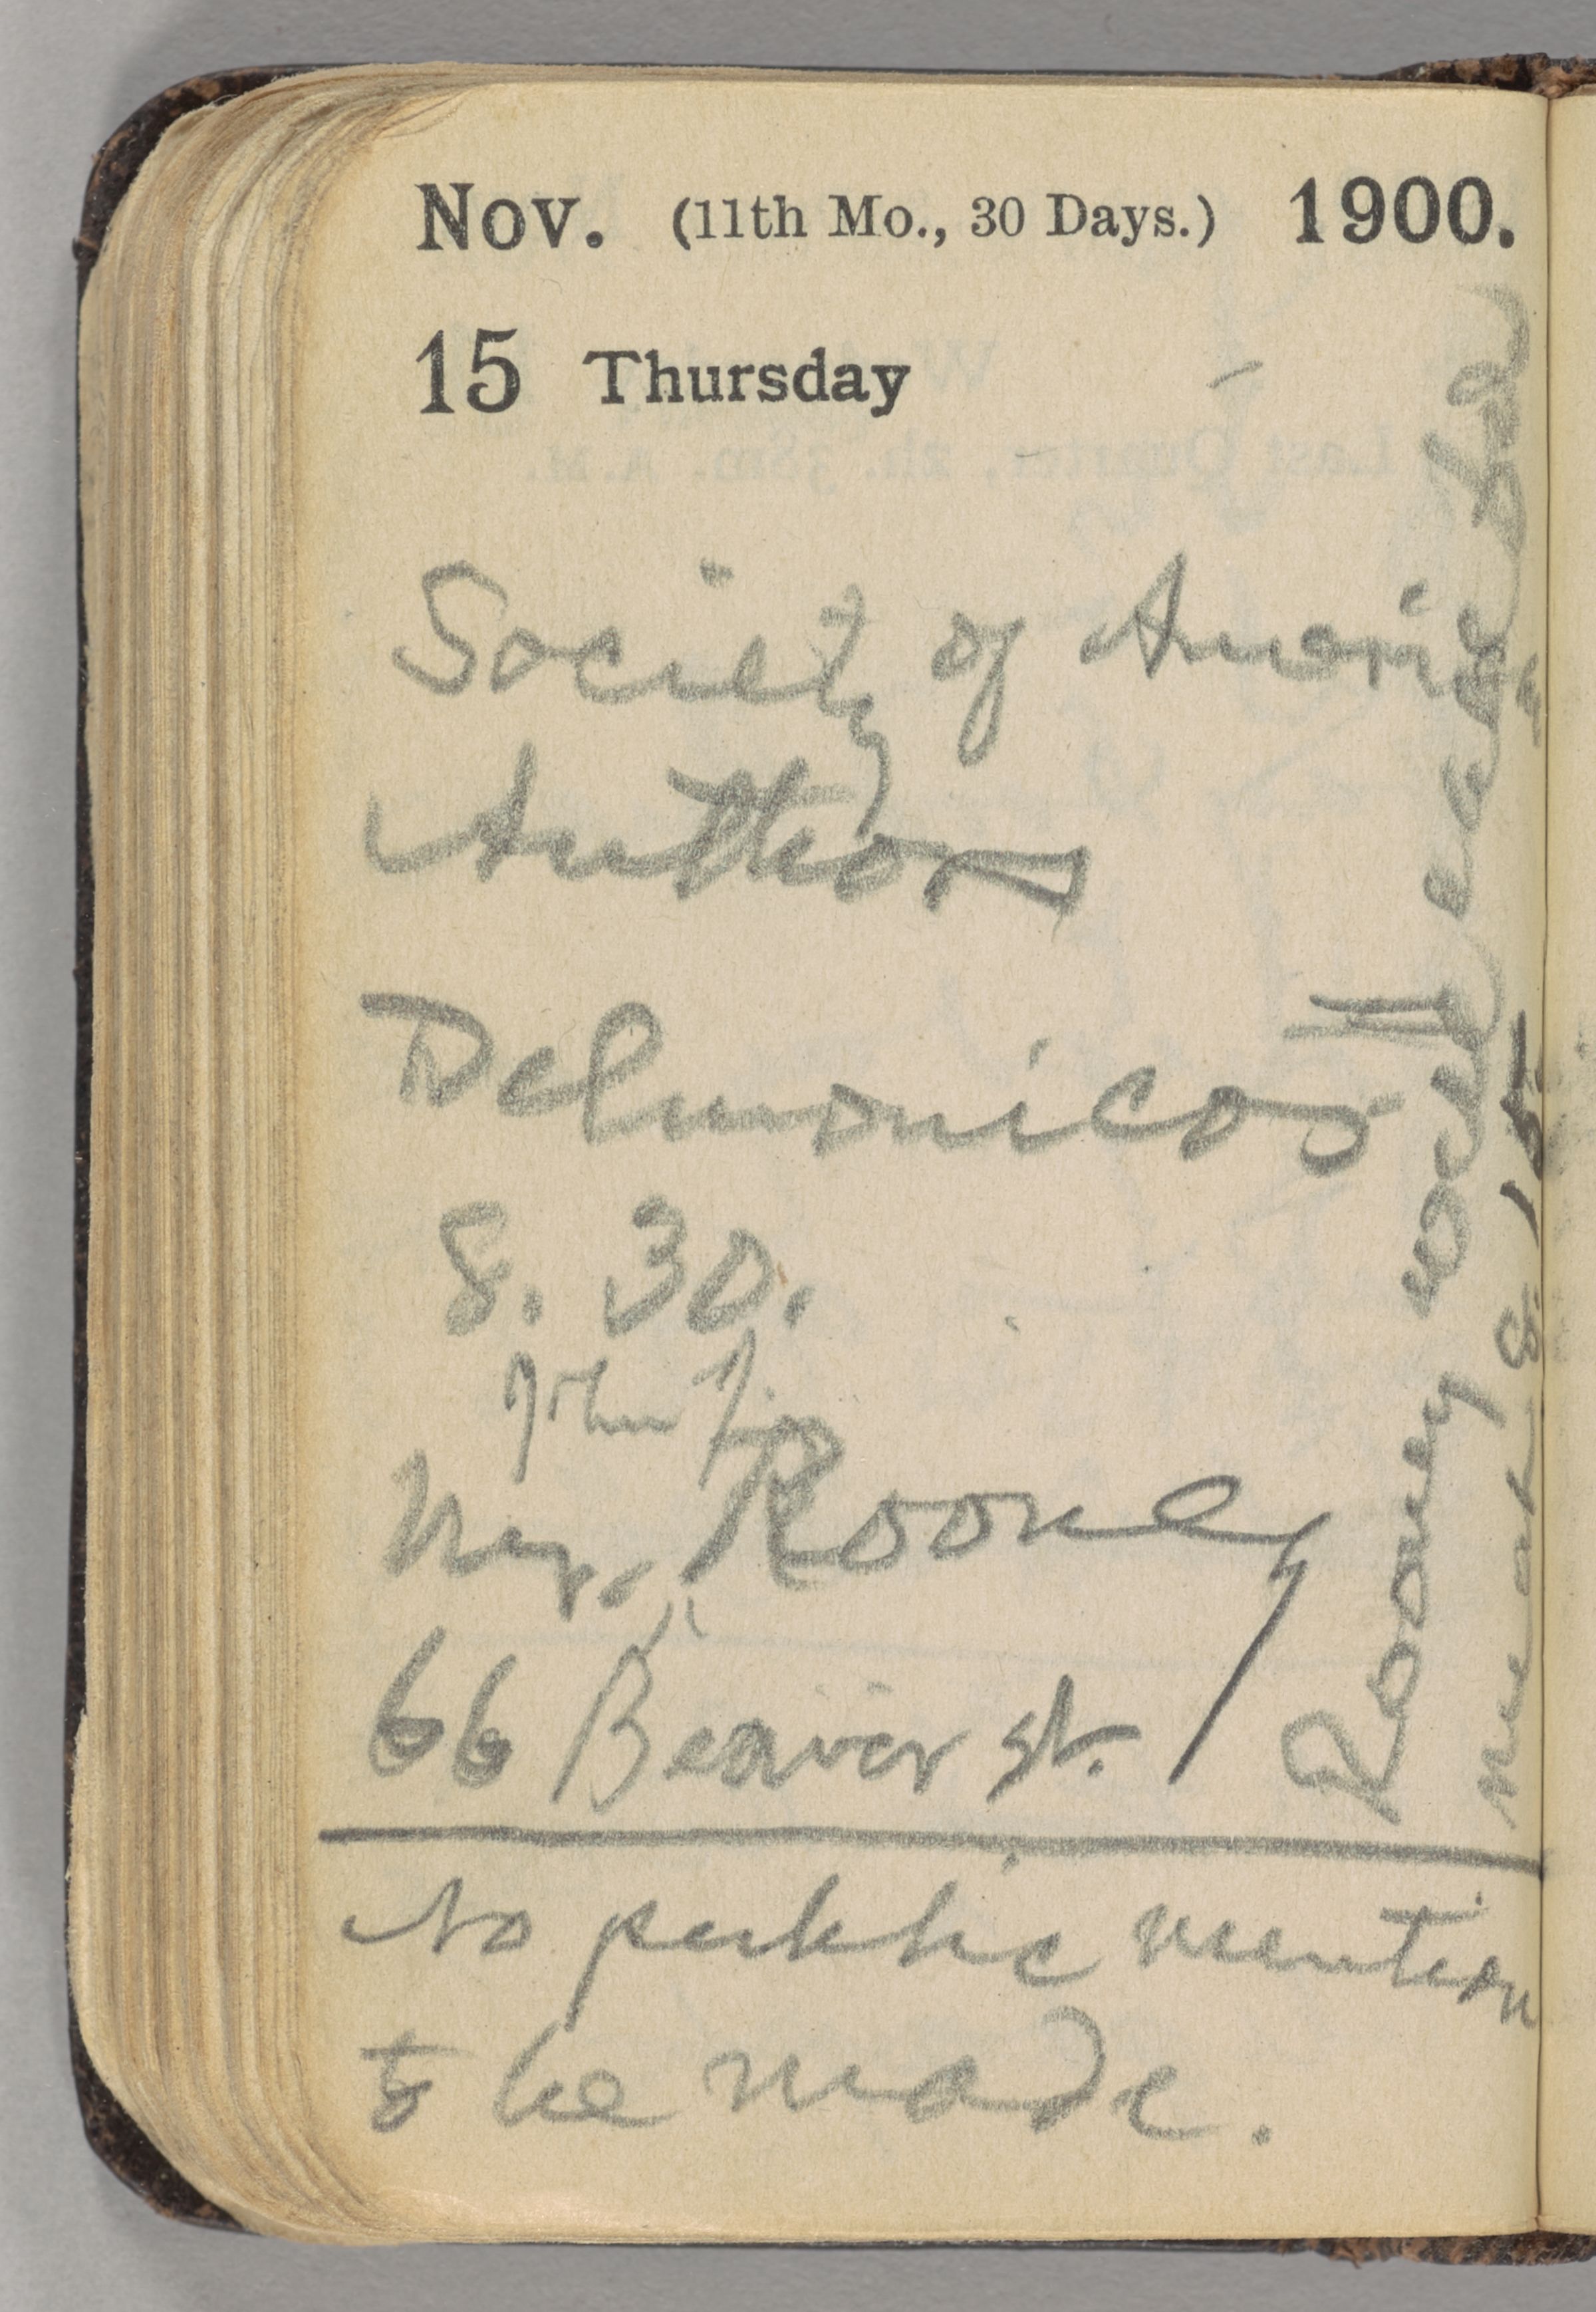 Nov. (11th Mo., 30 Days.) 1900.
15 Thursday
Society of American
Authors
Delmonicos
8. 30.
John J.
Mr. Rooney
66 Beaver st.
No public mention
to be made.
Rooney will
me at 8.15